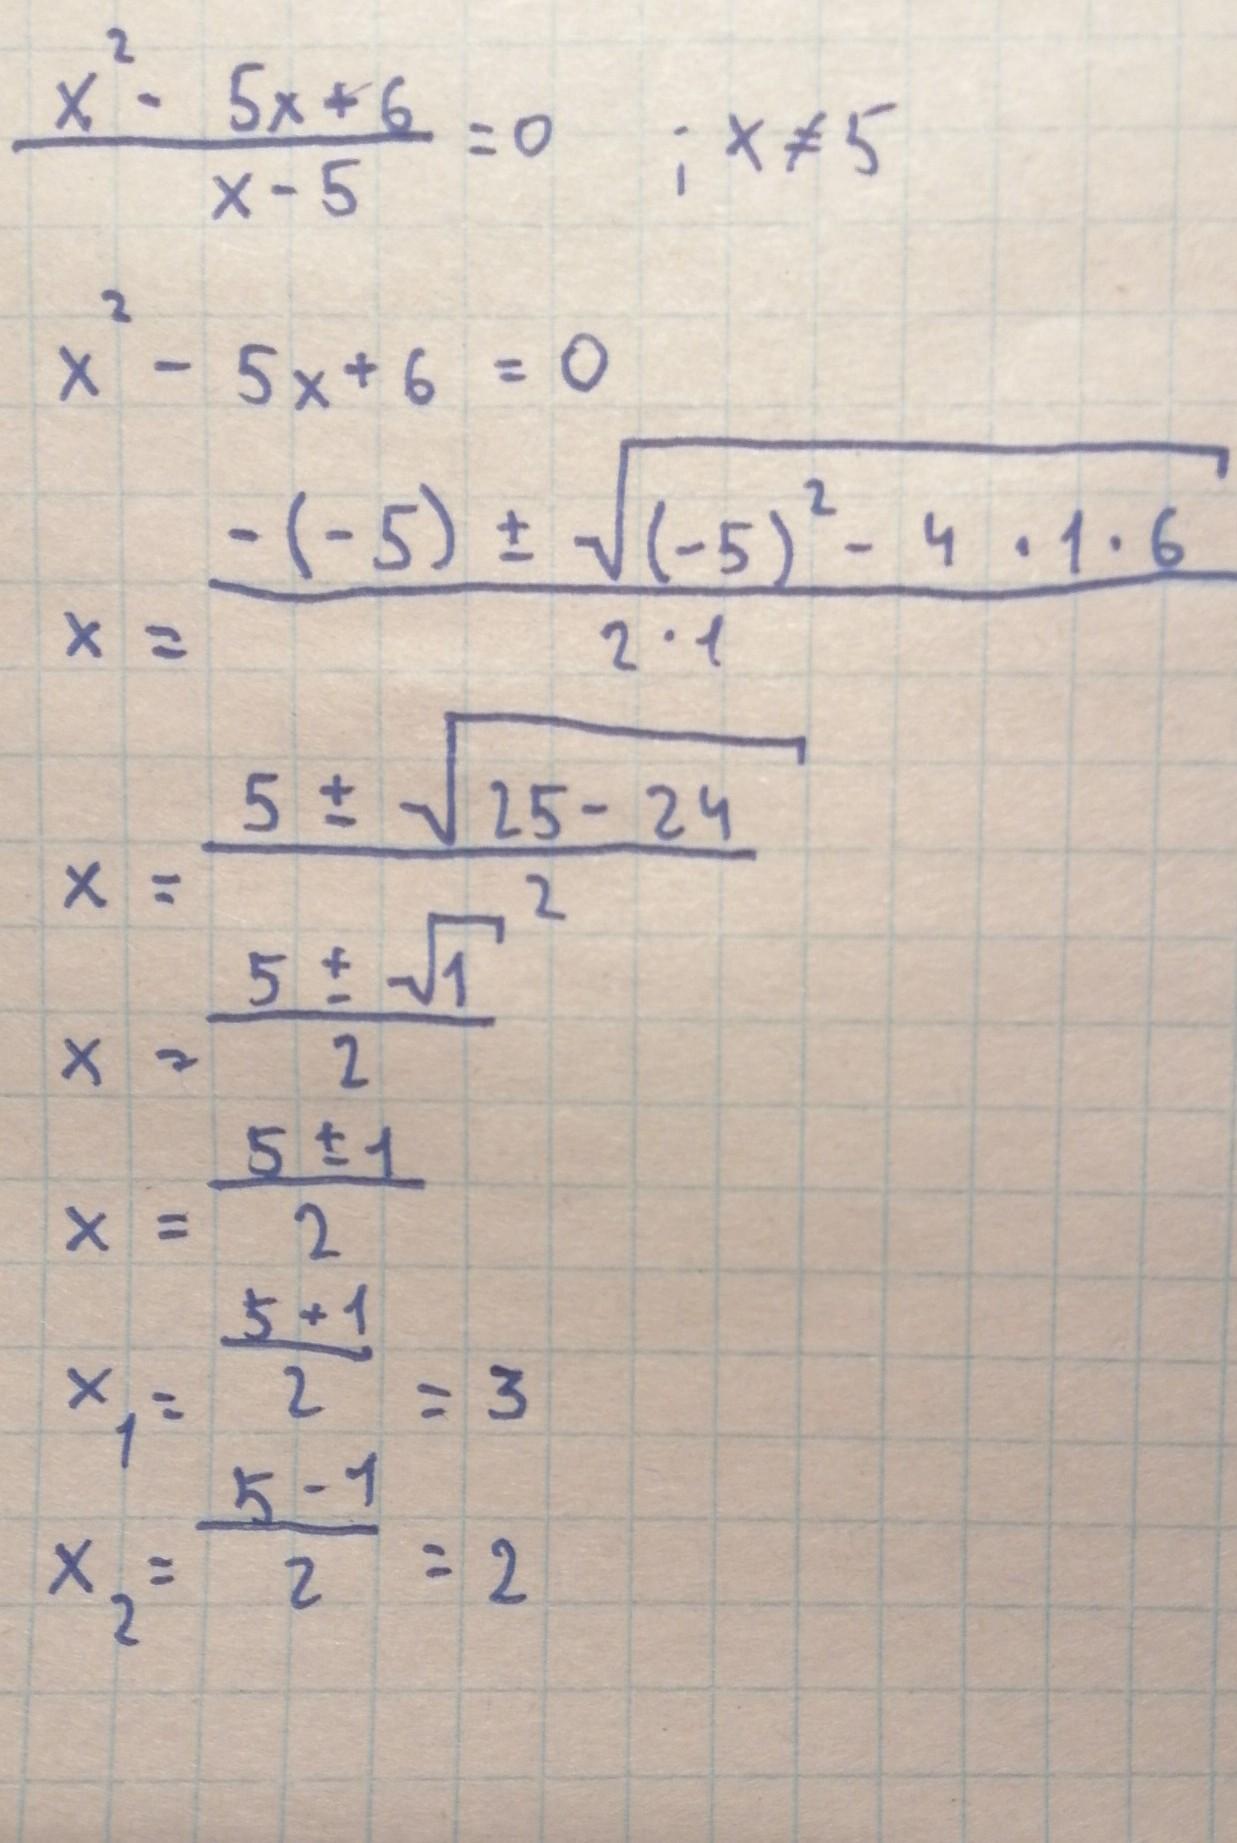 (x² - 5x + 6)/(x - 5) = 0 ; x ≠ 5
x² - 5x + 6 = 0
x = (-(-5) ± √((-5)² - 4 · 1 · 6))/(2 · 1)
x = (5 ± √(25 - 24))/2
x = (5 ± √1)/2
x = (5 ± 1)/2
x₁ = (5 + 1)/2 = 3
x₂ = (5 - 1)/2 = 2